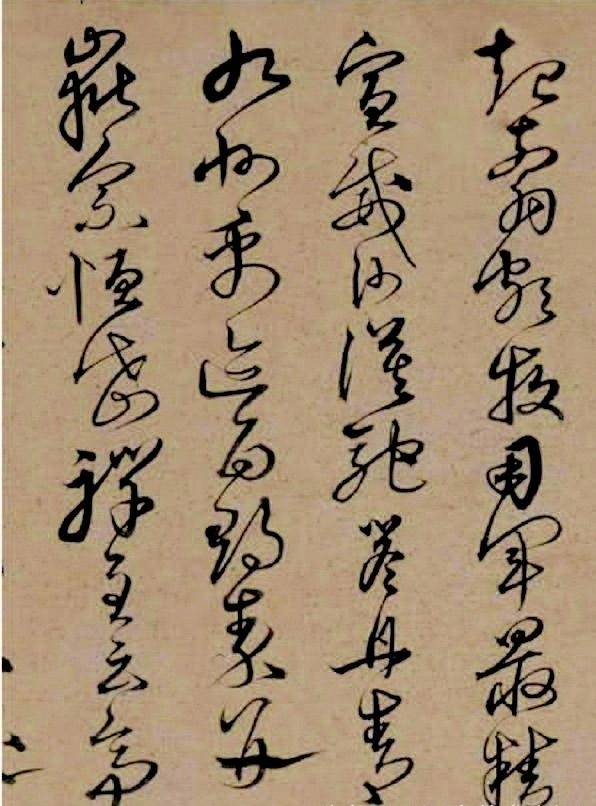 起翦頗牧用軍最精
宣威沙漠馳譽丹青
九州禹迹百郡秦并
嶽宗恒岱禪主云亭